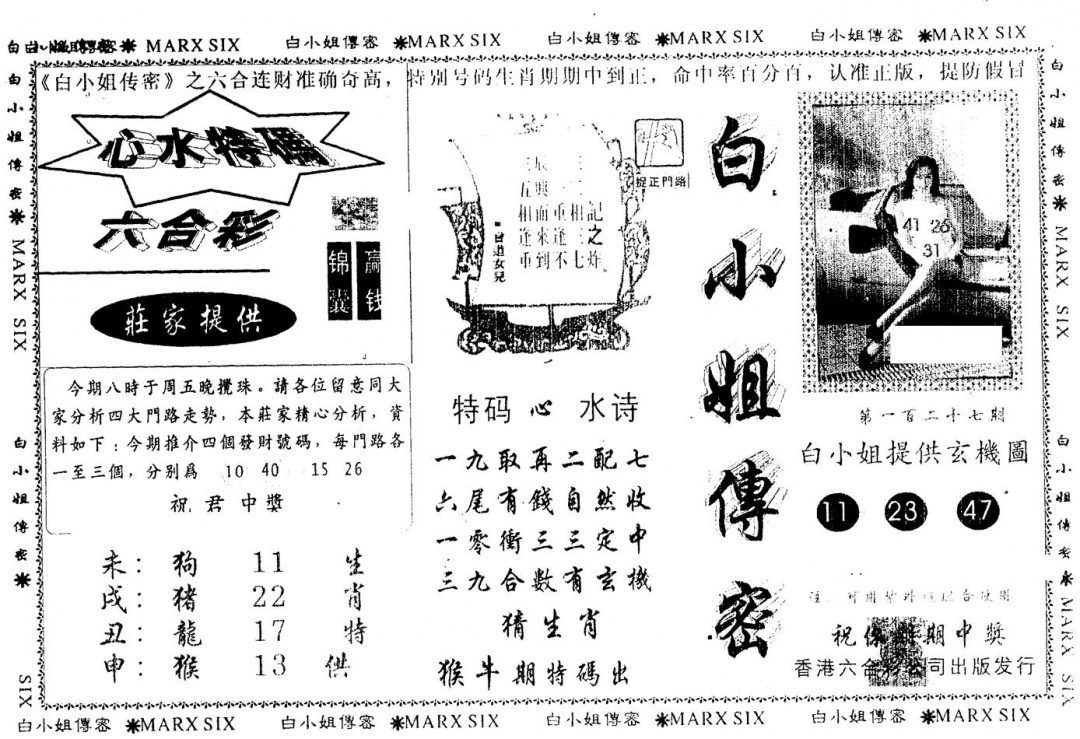 白小姐傳密 MARX SIX 白小姐傳密 MARX SIX 白小姐傳密 MARX SIX 白小姐傳密 MARX SIX
《白小姐传密》之六合连财准确奇高，特别号码生肖期期中到正，命中率百分百，认准正版，提防假冒
心水特碼
六合彩
锦囊
赢钱
莊家提供
今期八時于周五晚攪珠。請各位留意同大
家分析四大門路走勢，本莊家精心分析，資
料如下：今期推介四個發財號碼，每門路各
一至三個，分别爲 10 40 15 26
祝君中獎
未：狗 11 生
戌：猪 22 肖
丑：龍 17 特
申：猴 13 供
記之炸
相三七
重逢不
相面
逢来
重到
五興
白道女兒
捉正門路
特码心水诗
一九取再二配七
六尾有錢自然收
一零衝三三定中
三九合數有玄機
猜生肖
猴牛期特碼出
白小姐傳密
41 26
31
第一百二十七期
白小姐提供玄機圖
11 23 47
祝你期期中獎
香港六合彩公司出版发行
白小姐傳密 MARX SIX
白小姐傳密
SIX
白小姐傳密 MARX SIX
白小姐傳密 MARX SIX
白小姐傳密 MARX SIX 白小姐傳密 MARX SIX 白小姐傳密 MARX SIX 白小姐傳密 MARX SIX